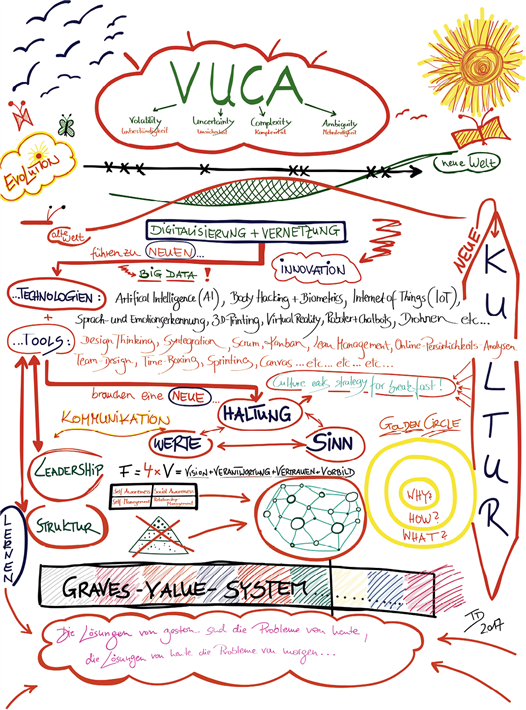 VUCA
Volatility Uncertainty Complexity Ambiguity
Unbeständigkeit Unsicherheit Komplexität Mehrdeutigkeit
EVOLUTION
neue Welt
alte Welt
DIGITALISIERUNG + VERNETZUNG
führen zu NEUEN...
BIG DATA !
INNOVATION
NEUE
KULTUR
...TECHNOLOGIEN: Artifical Intelligence (AI), Body Hacking + Biometrics, Internet of Things (IoT),
Sprach- und Emotionserkennung, 3D-Printing, Virtual Reality, Roboter + Chatbots, Drohnen etc...
+
...TOOLS: Design Thinking, Syntegration, Scrum, Kanban, Lean Management, Online-Persönlichkeits-Analysen
Team-Design, Time-Boxing, Sprinting, Canvas... etc... etc... etc...
Culture eats strategy for breakfast!
brauchen eine NEUE...
HALTUNG
KOMMUNIKATION
WERTE
SINN
GOLDEN CIRCLE
LEADERSHIP
F = 4 x V = VISION + VERANTWORTUNG + VERTRAUEN + VORBILD
Self-Awareness Social Awareness
Self-Management Relationship Management
WHY?
HOW?
WHAT?
STRUKTUR
LERNEN
GRAVES-VALUE-SYSTEM......
TD
2017
Die Lösungen von gestern sind die Probleme von heute,
die Lösungen von heute die Probleme von morgen...